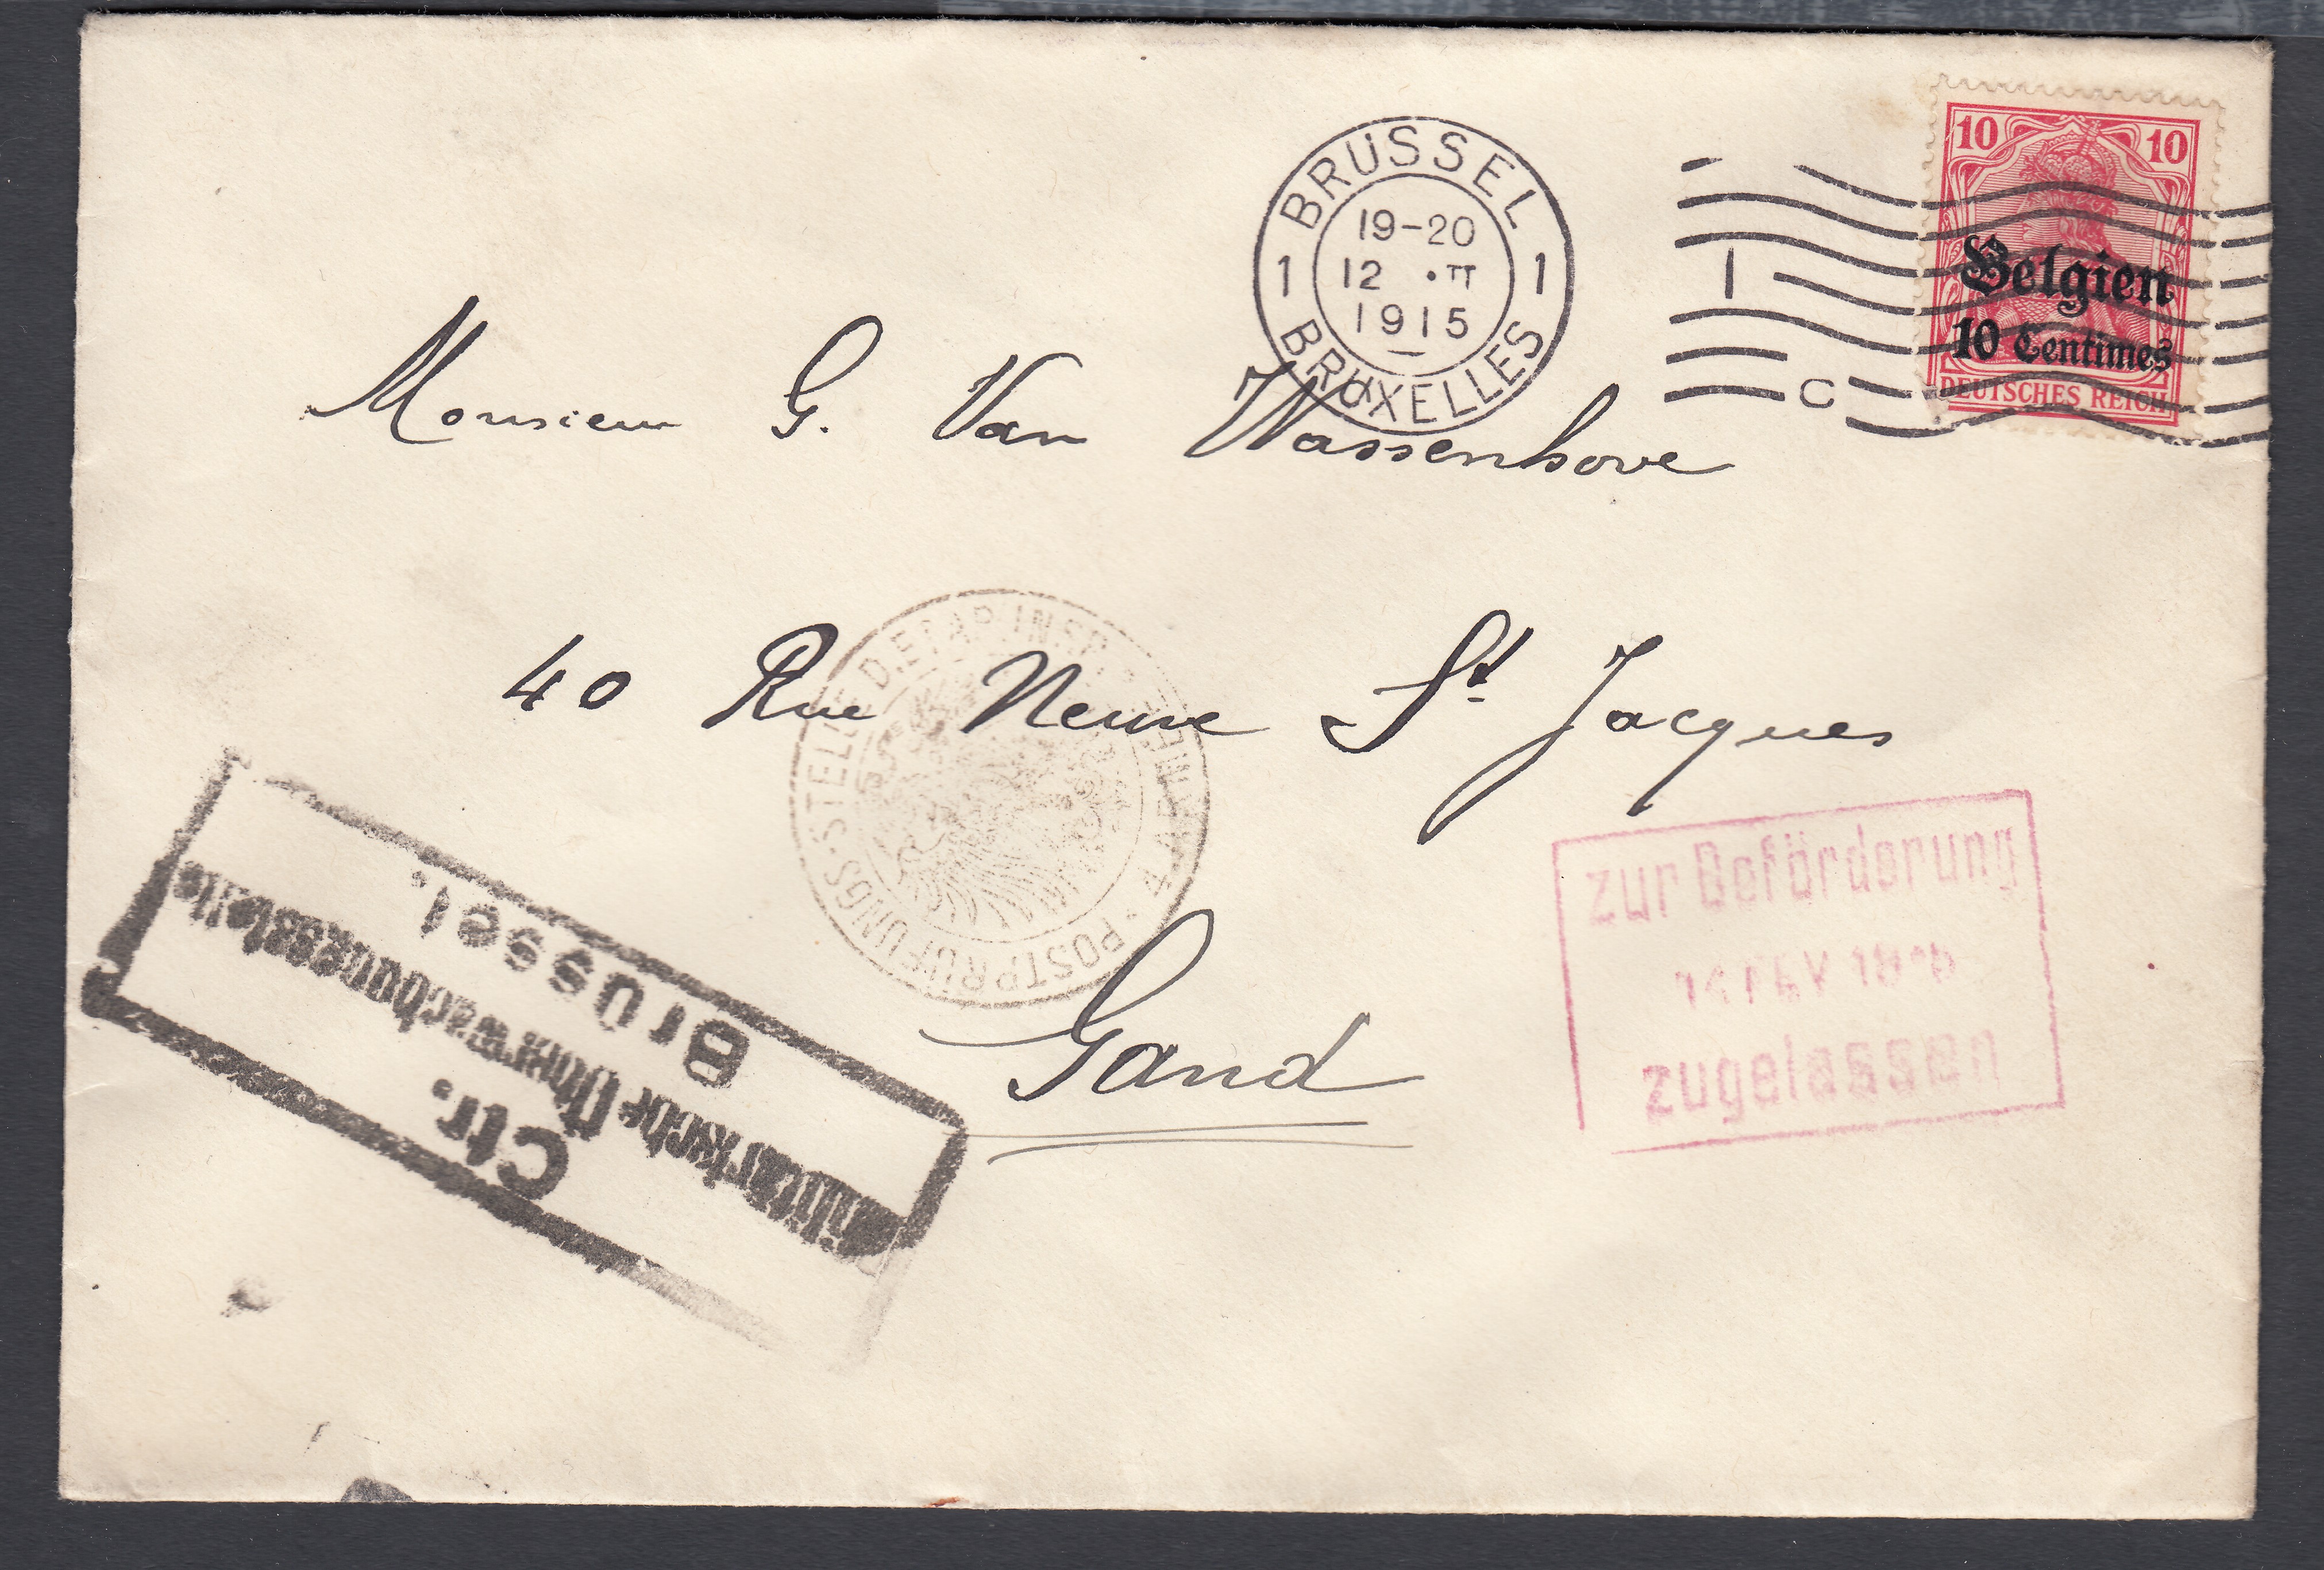 BRUSSEL
19-20
12 · II
1915
1 1
BRUXELLES
1
C
10 10
Belgien
10 Centimes
DEUTSCHES REICH
Monsieur G. Van Wassenhove
40 Rue Neuve St. Jacques
Gand
POSTPRÜFUNGS-STELLE D.ETAP.INSP. · 4. ARMEE ·
Ctr.
Militärische Überwachungsstelle
Brüssel.
zur Beförderung
14 FEV
zugelassen